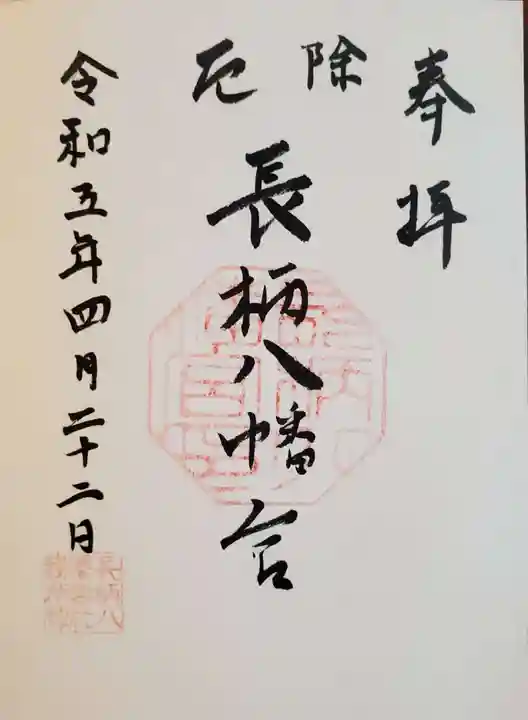 奉拝
除厄
長柄八幡宮
令和五年四月二十二日